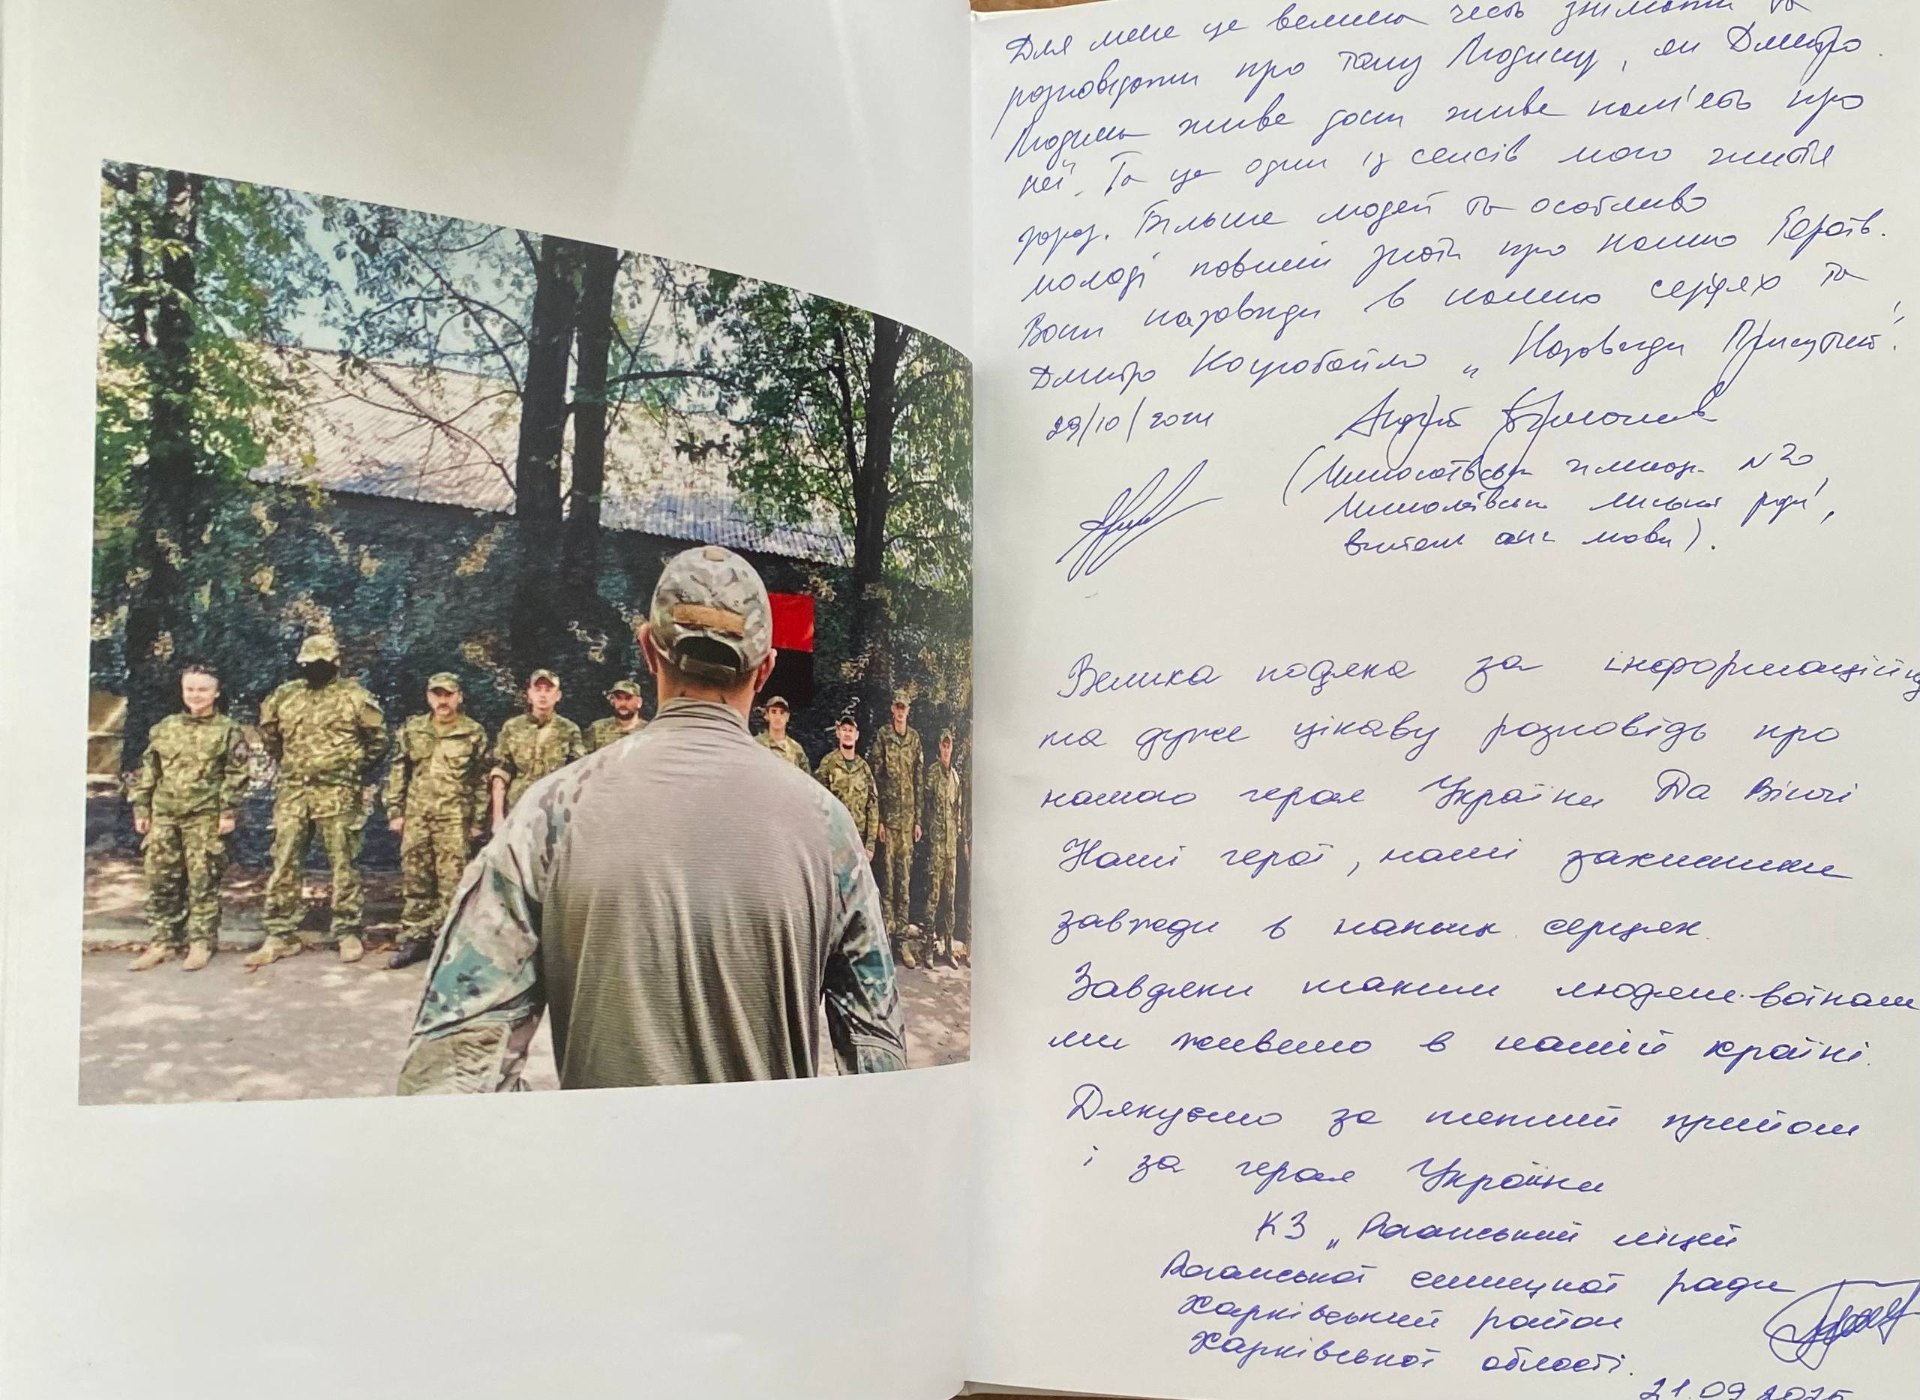 Для мене це велика честь знімати та
розповідати про таку Людину, як Дмитро.
Людина живе доки живе пам'ять про
неї. Та це один із сенсів мого життя
зараз. Більше людей та особливо
молоді повинні знати про наших Героїв.
Вони назавжди в наших серцях та
Дмитро Коцюбайло „Назавжди Присутній!
29/10/2024
Андрій
(Миколаївська гімназія №20
Миколаївської міської ради,
вчитель анг мови).
Велика подяка за інформаційну
та дуже цікаву розповідь про
нашого героя України Да Вінчі
Наші герої, наші захисники
завжди в наших серцях.
Завдяки таким людям-воїнам
ми живемо в нашій країні.
Дякуємо за теплий прийом
і за героя України
КЗ „Роганський ліцей
Роганської селищної ради
Харківський район
Харківської області.
21.09.2025